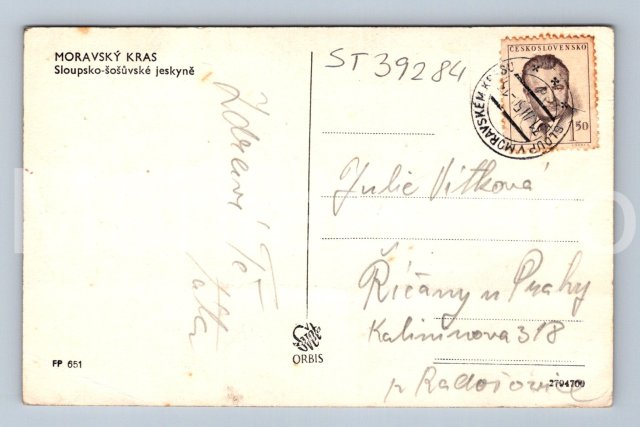 MORAVSKÝ KRAS
Sloupsko-šošůvské jeskyně
ST 39284
ČESKOSLOVENSKO
1.50
SLOUP V MORAVSKÉM KRASU
Zdraví Tě
Julie Vítková
Říčany u Prahy
Kalininova 318
p Radošovice
ORBIS
FP 651
2704700